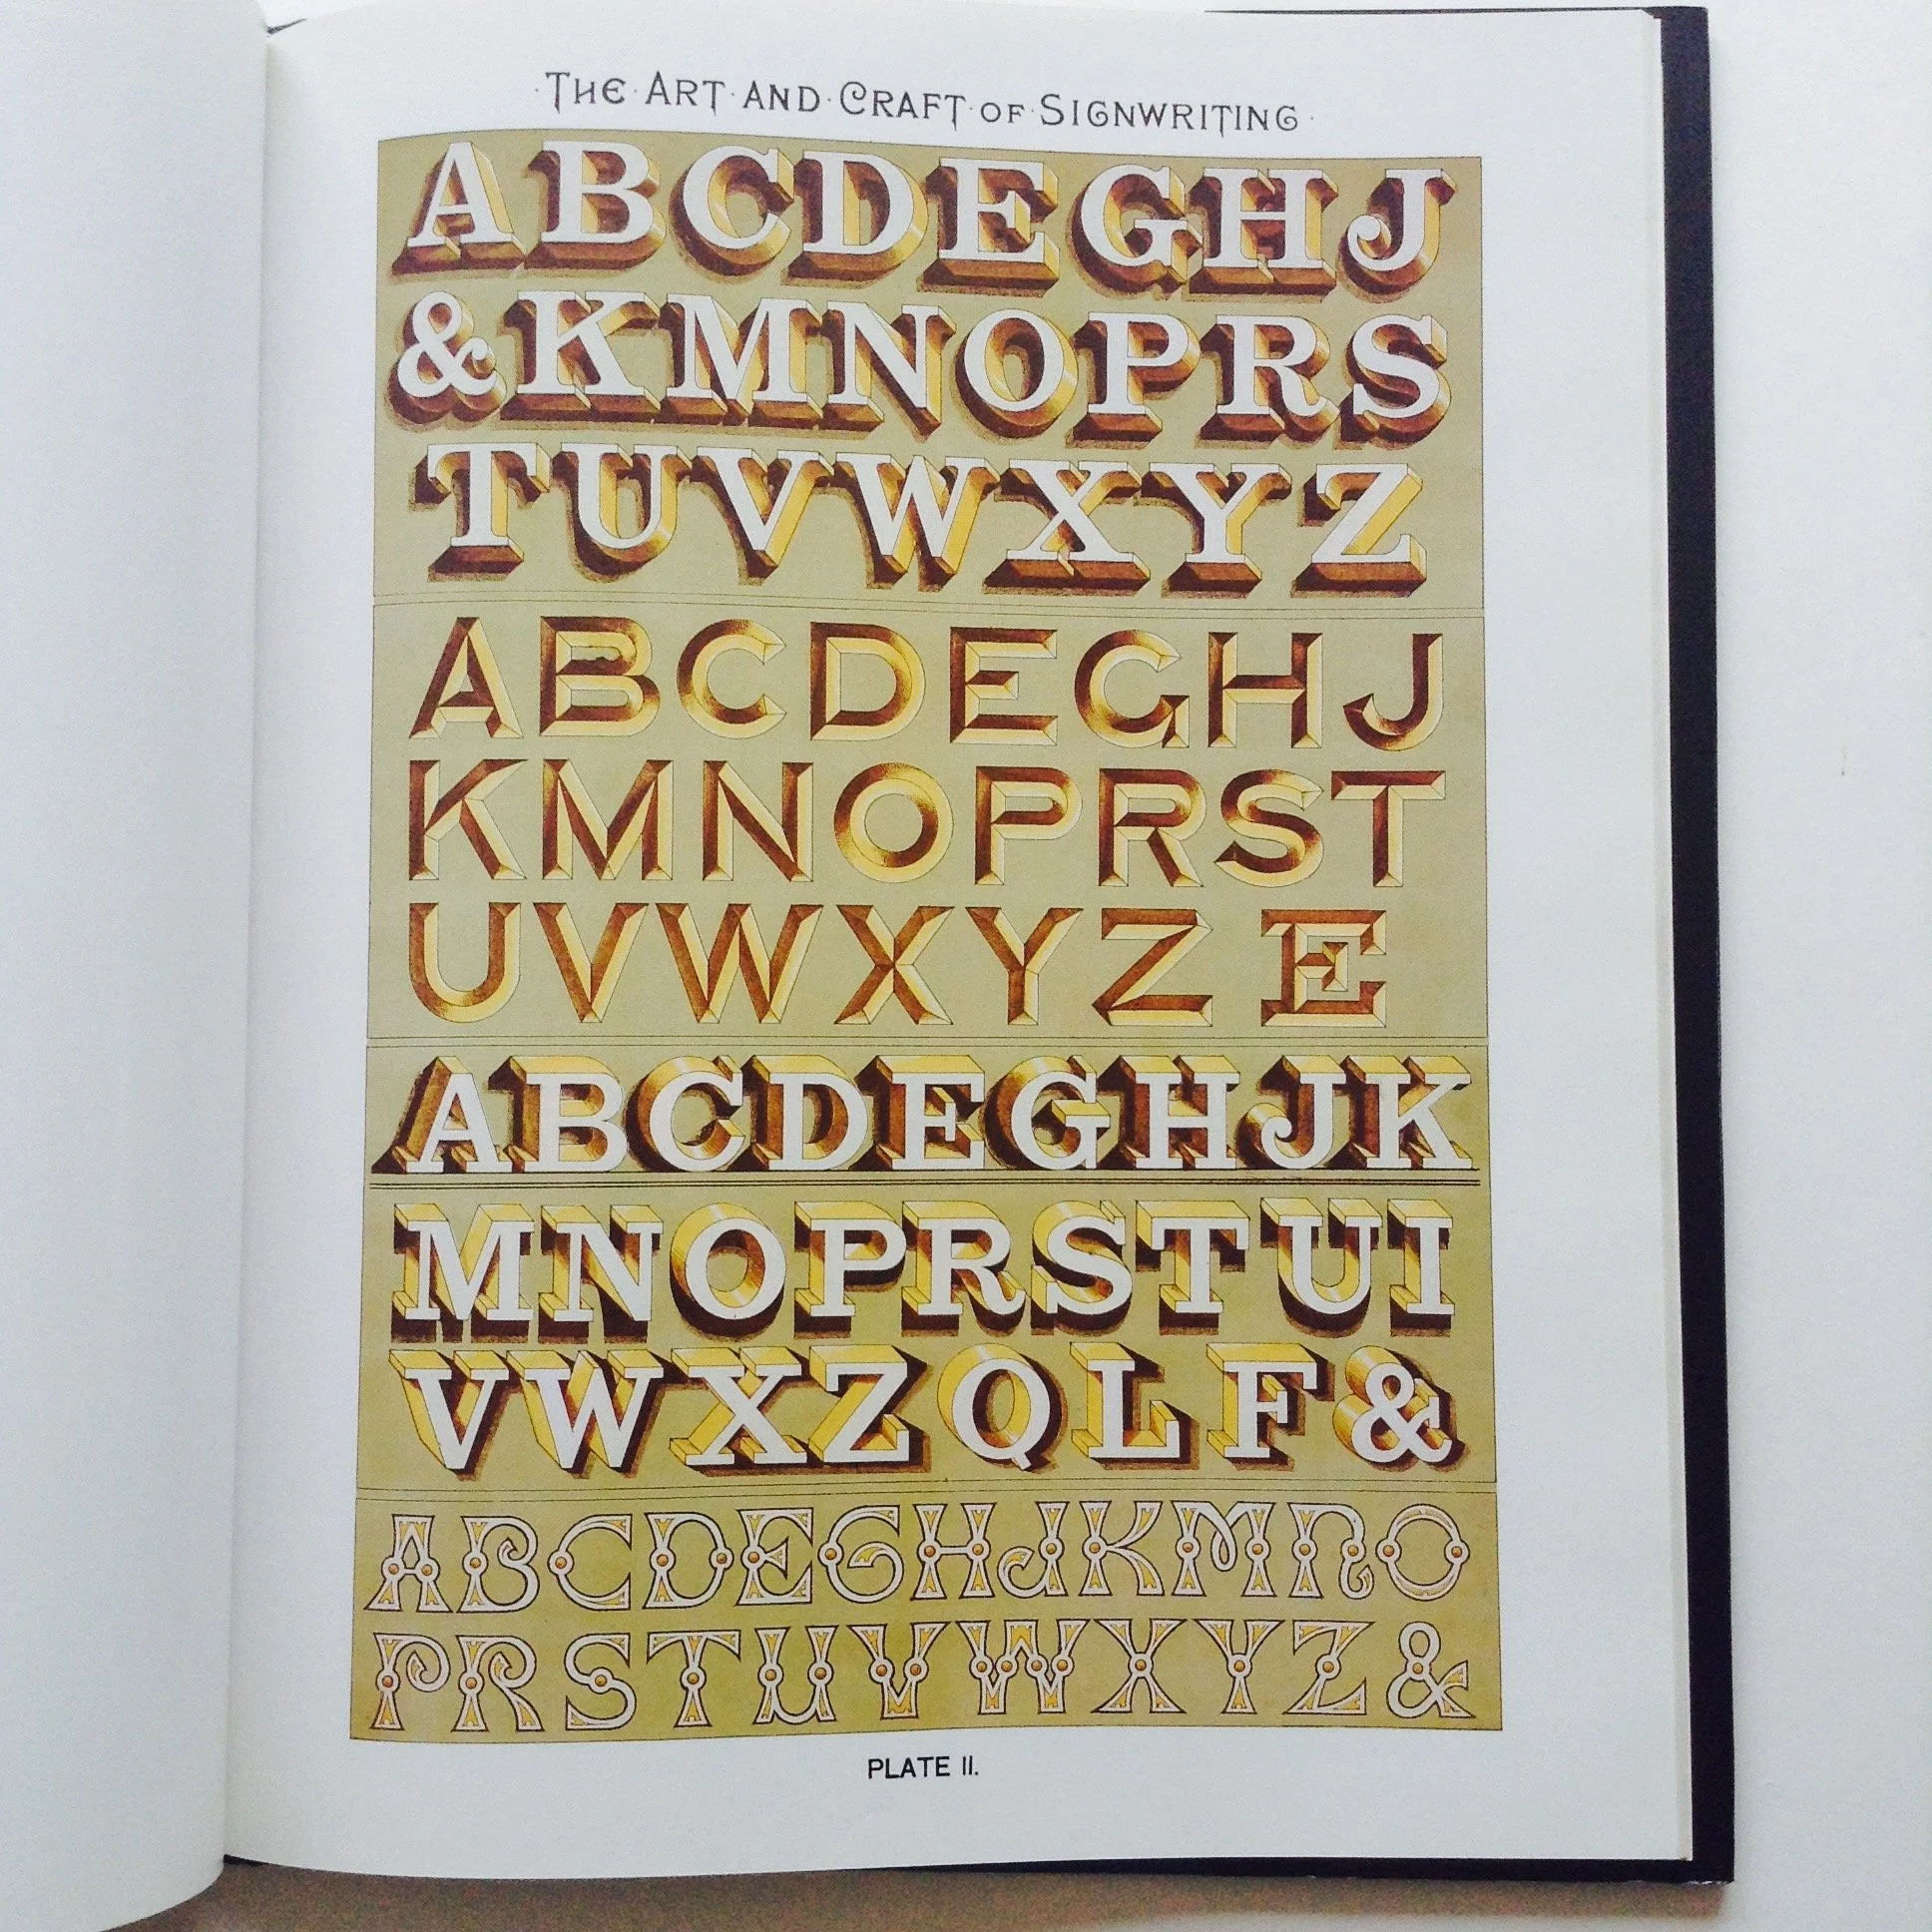 ·THE·ART·AND·CRAFT·OF·SIGNWRITING·
ABCDEGHJ
&KMNOPRS
TUVWXYZ
ABCDEGHJ
KMNOPRST
UVWXYZ E
ABCDEGHJK
MNOPRSTUI
VWXZQLF&
ABCDEGHJKMNO
PRSTUVWXYZ&
PLATE II.